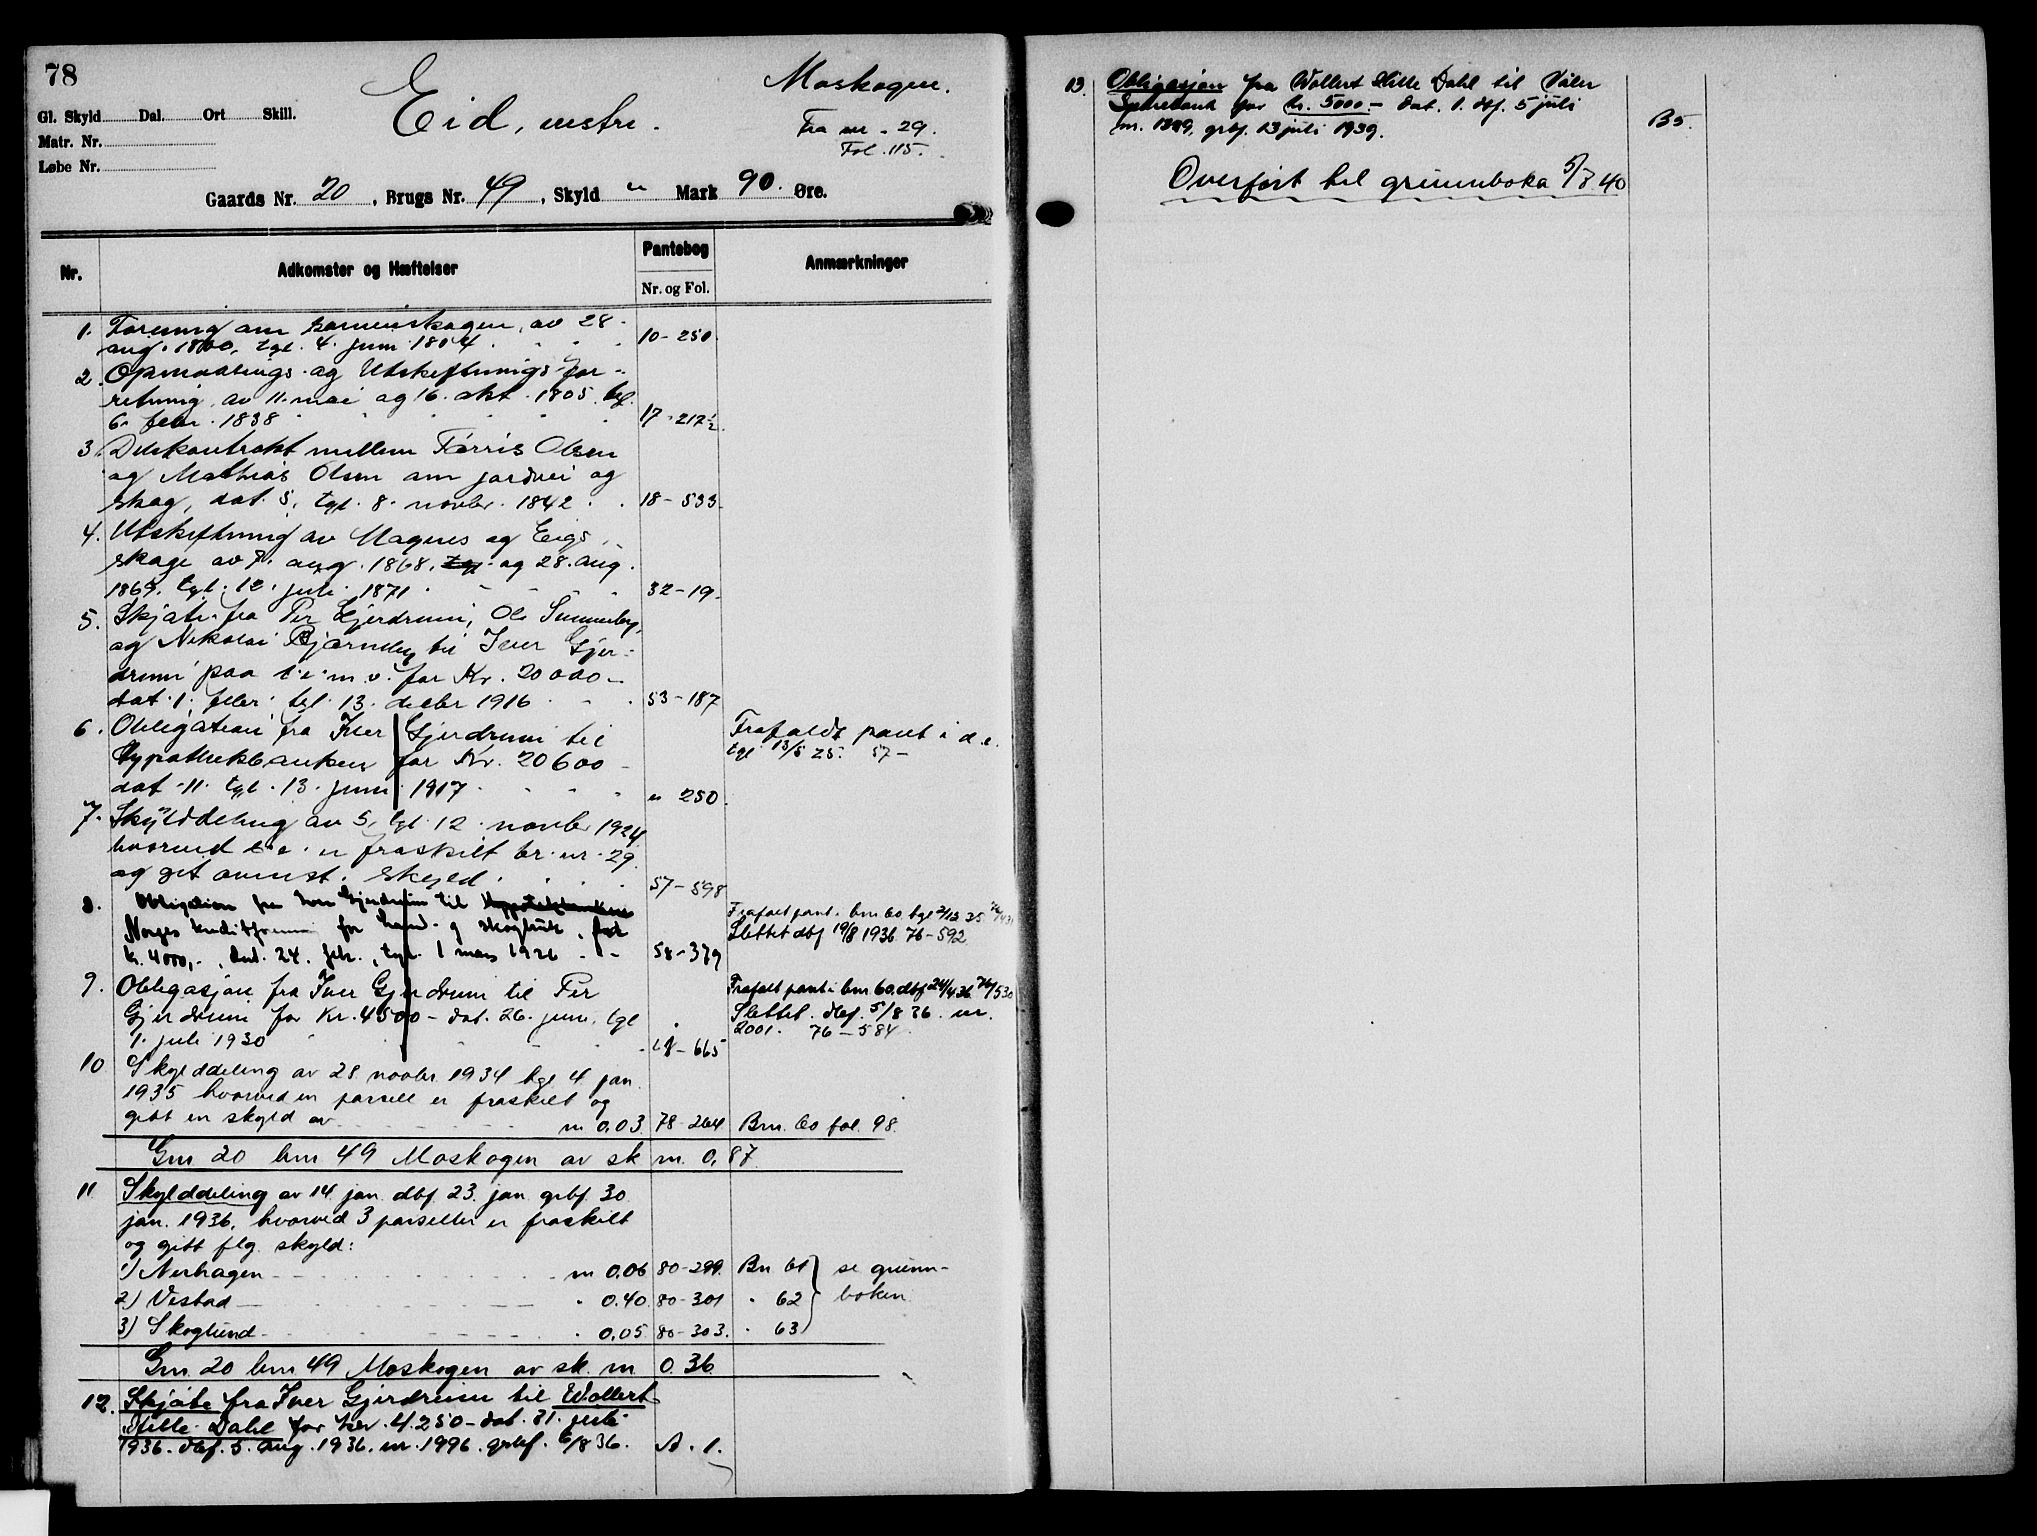 78
Moskogen.
Eid, vestre.
Fra nr. 29.
Fol. 115.
Gl. Skyld Dal. Ort Skill.
Matr. Nr.
Løbe Nr.
Gaards Nr. 20, Brugs Nr. 49, Skyld " Mark 90. Øre.
Nr. Adkomster og Hæftelser Pantebog Nr. og Fol. Anmærkninger
1. Forening om av 28.
aug. 1800, tgl. 4. juni 1804 10-250.
2. Opmaalings og Utskiftnings for-
retning av 11. mai og 16. okt. 1805. tgl.
6. febr. 1838 17-217½.
3. Delekontrakt mellem Førris Olsen
og Mathias Olsen om jordvei og
skog, dat. 5, tgl. 8. novbr. 1842. 18-533.
4. Utskiftning av Magnes og Eigs
skoge av 8. aug. 1868, tgl. og 28. aug.
1869. tgl. 12. juli 1871 32-19.
5. Skjøte fra Per Gjerdrum, Ole
og Nikolai til Iver Gjer-
drum paa d.e. m.v. for Kr. 20000-
dat. 1. febr. tgl. 13. decbr 1916 53-187
6. Obligation fra Iver Gjerdrum til Frafaldt pant i d.e.
Hypothekbanken for Kr. 20600- tgl 13/5 25. 57-
dat. 11. tgl. 13. juni 1917. " 250.
7. Skylddeling av 5, tgl. 12. novbr 1924
hvorved d.e. er fraskilt br. nr. 29.
og git anmst. skyld. 57-598
8. Obligation fra Iver Gjerdrum til Hypotekbanken Frafalt pant i bnr 60 tgl 2/12 35
Norges kreditforening for land- og skogbruk, for Slettet dbf 19/8 1936 76-592
kr. 4000,-, dat. 24. febr., tgl. 1 mars 1926 - 58-379
9. Obligasjon fra Iver Gjerdrum til Per Frafalt pant i bnr 60. dbf 24/4 36 76/530
Gjerdrum for Kr. 4500- dat. 26. juni, tgl Slettet. dbf. 5/8 36. nr.
1. juli 1930 -665 2001. 76-584
10 Skylddeling av 28 novbr. 1934 tgl. 4 jan.
1935 hvorved en parsell er fraskilt og
gitt en skyld av m 0,03. 78-264 Bnr. 60 fol. 98.
Gnr 20 bnr 49 Moskogen av sk m. 0,87.
11 Skylddeling av 14 jan. dbf. 23. jan. grbf. 30
jan. 1936, hvorved 3 parseller er fraskilt
og gitt flg. skyld:
1) Nerhagen m 0.06 80-299. Bn 61 se grunn-
2) Vestad " 0.40 80-301 " 62 boken
3) Skoglund " 0.05 80-303. " 63
Gnr. 20 bnr 49 Moskogen av sk. m 0.36
12. Skjøte fra Iver Gjerdrum til Wollert
Hille Dahl for kr. 4.250- dat. 31. juli
1936. dbf. 5. aug. 1936. nr. 1996. grbf. 6/8 36. A. 1.
13 Obligasjon fra Wollert Hille Dahl til Våler
Sparebank for kr. 5000.- dat. 1. dbf. 5 juli
nr. 1399, grbf. 13 juli 1939. B 5.
Overført til grunnboka 5/8 40